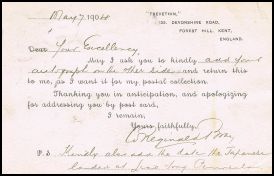 May 7. 1904
"TREVETHAN,"
135, DEVONSHIRE ROAD,
FOREST HILL, KENT,
ENGLAND.
Dear Your Excellency
May I ask you to kindly add your
autograph on the other side and return this
to me, as I want it for my postal collection.
Thanking you in anticipation, and apologizing
for addressing you by post card,
I remain,
Yours faithfully,
W. Reginald Bray
P.S Kindly also add the date the Japanese